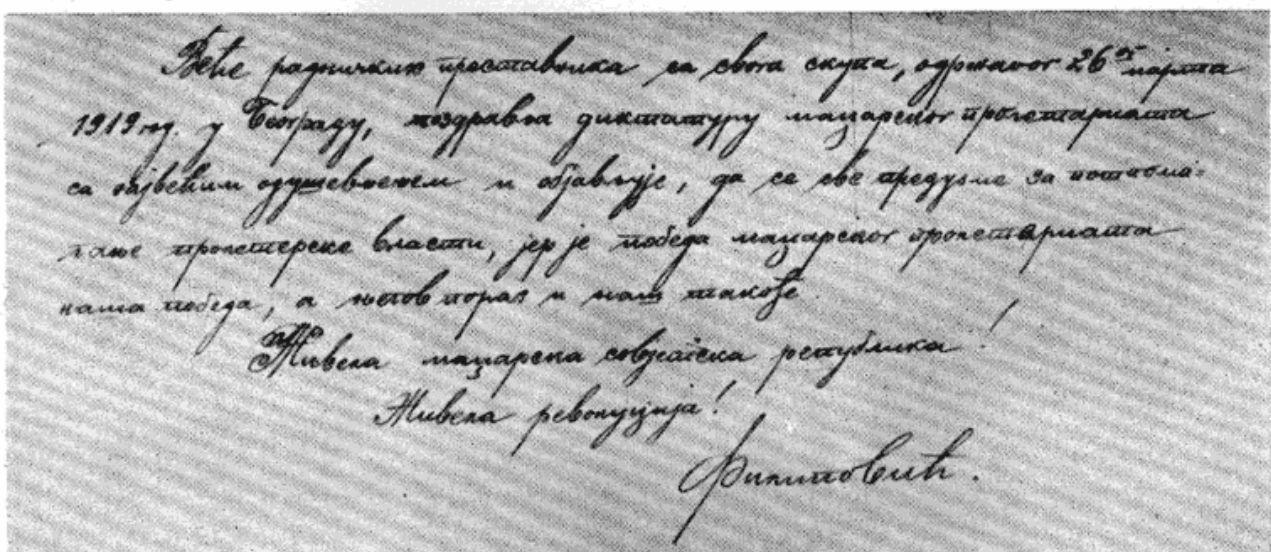 Веће радничких претставника са свога скупа, одржаног 26ог марта
1919 год. у Београду, поздравља диктатуру мађарског пролетариата
са највећим одушевљењем и објављује, да се све предузме за потпома-
гање пролетерске власти, јер је победа мађарског пролетариата
наша победа, а његов пораз и наш такође.
Живела мађарска совјетска република!
Живела револуција!
Филиповић.